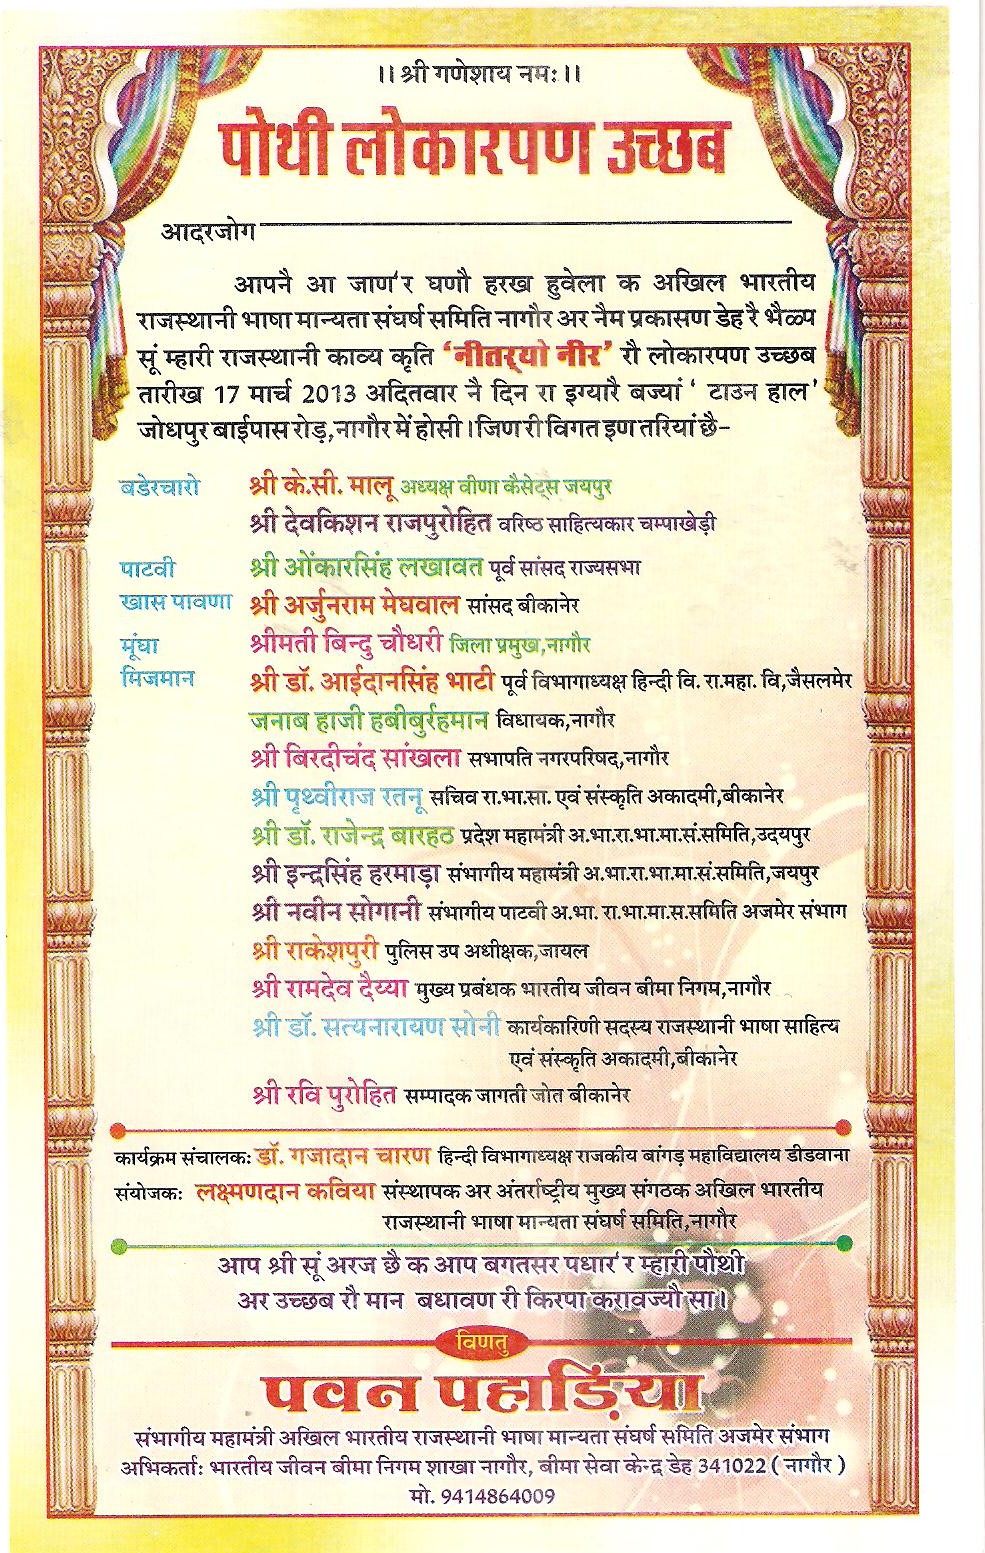 ।। श्री गणेशाय नमः।।
पोथी लोकारपण उच्छब
आदरजोग
आपनै आ जाण'र घणौ हरख हुवेला क अखिल भारतीय
राजस्थानी भाषा मान्यता संघर्ष समिति नागौर अर नैम प्रकासण डेह रै भैळप
सूं म्हारी राजस्थानी काव्य कृति 'नीतर्‌यो नीर' रौ लोकारपण उच्छब
तारीख 17 मार्च 2013 अदितवार नै दिन रा इग्यारै बज्यां ' टाउन हाल'
जोधपुर बाईपास रोड़,नागौर में होसी।जिण री विगत इण तरियां छै-
बडेरचारो श्री के.सी. मालू अध्यक्ष वीणा कैसेट्स जयपुर
श्री देवकिशन राजपुरोहित वरिष्ठ साहित्यकार चम्पाखेड़ी
पाटवी श्री ओंकारसिंह लखावत पूर्व सांसद राज्यसभा
खास पावणा श्री अर्जुनराम मेघवाल सांसद बीकानेर
मूंघा श्रीमती बिन्दु चौधरी जिला प्रमुख,नागौर
मिजमान श्री डॉ. आईदानसिंह भाटी पूर्व विभागाध्यक्ष हिन्दी वि. रा.महा. वि,जैसलमेर
जनाब हाजी हबीबुर्रहमान विधायक,नागौर
श्री बिरदीचंद सांखला सभापति नगरपरिषद,नागौर
श्री पृथ्वीराज रतनू सचिव रा.भा.सा. एवं संस्कृति अकादमी,बीकानेर
श्री डॉ. राजेन्द्र बारहठ प्रदेश महामंत्री अ.भा.रा.भा.मा.सं.समिति,उदयपुर
श्री इन्द्रसिंह हरमाड़ा संभागीय महामंत्री अ.भा.रा.भा.मा.सं.समिति,जयपुर
श्री नवीन सोगानी संभागीय पाटवी अ.भा. रा.भा.मा.स.समिति अजमेर संभाग
श्री राकेशपुरी पुलिस उप अधीक्षक,जायल
श्री रामदेव दैय्या मुख्य प्रबंधक भारतीय जीवन बीमा निगम,नागौर
श्री डॉ. सत्यनारायण सोनी कार्यकारिणी सदस्य राजस्थानी भाषा साहित्य
एवं संस्कृति अकादमी,बीकानेर
श्री रवि पुरोहित सम्पादक जागती जोत बीकानेर
कार्यक्रम संचालकः डॉ. गजादान चारण हिन्दी विभागाध्यक्ष राजकीय बांगड़ महाविद्यालय डीडवाना
संयोजकः लक्ष्मणदान कविया संस्थापक अर अंतर्राष्ट्रीय मुख्य संगठक अखिल भारतीय
राजस्थानी भाषा मान्यता संघर्ष समिति,नागौर
आप श्री सूं अरज छै क आप बगतसर पधार'र म्हारी पौथी
अर उच्छब रौ मान बधावण री किरपा करावज्यौ सा।
विणतु
पवन पहाड़िया
संभागीय महामंत्री अखिल भारतीय राजस्थानी भाषा मान्यता संघर्ष समिति अजमेर संभाग
अभिकर्ताः भारतीय जीवन बीमा निगम शाखा नागौर, बीमा सेवा केन्द्र डेह 341022 ( नागौर )
मो. 9414864009